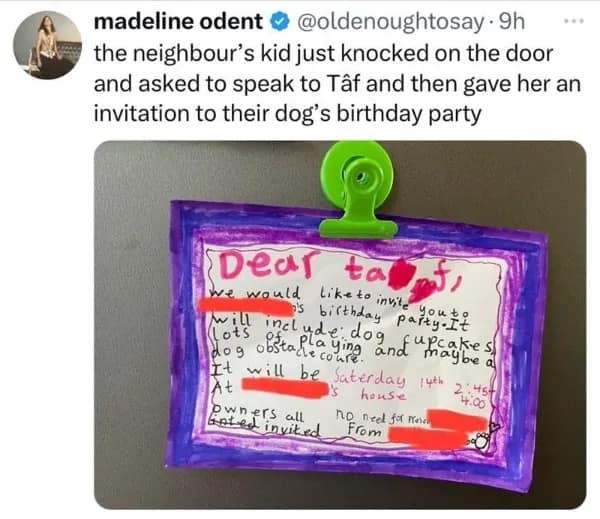 madeline odent @oldenoughtosay · 9h
the neighbour's kid just knocked on the door
and asked to speak to Tâf and then gave her an
invitation to their dog's birthday party
Dear taf,
we would like to invite you to
's birthday party. It
will include: dog cupcakes,
Lots of playing and maybe a
dog obstacle coure.
It will be Saterday 14th 2:45
At 's house 4:00
owners all no need for
invited From